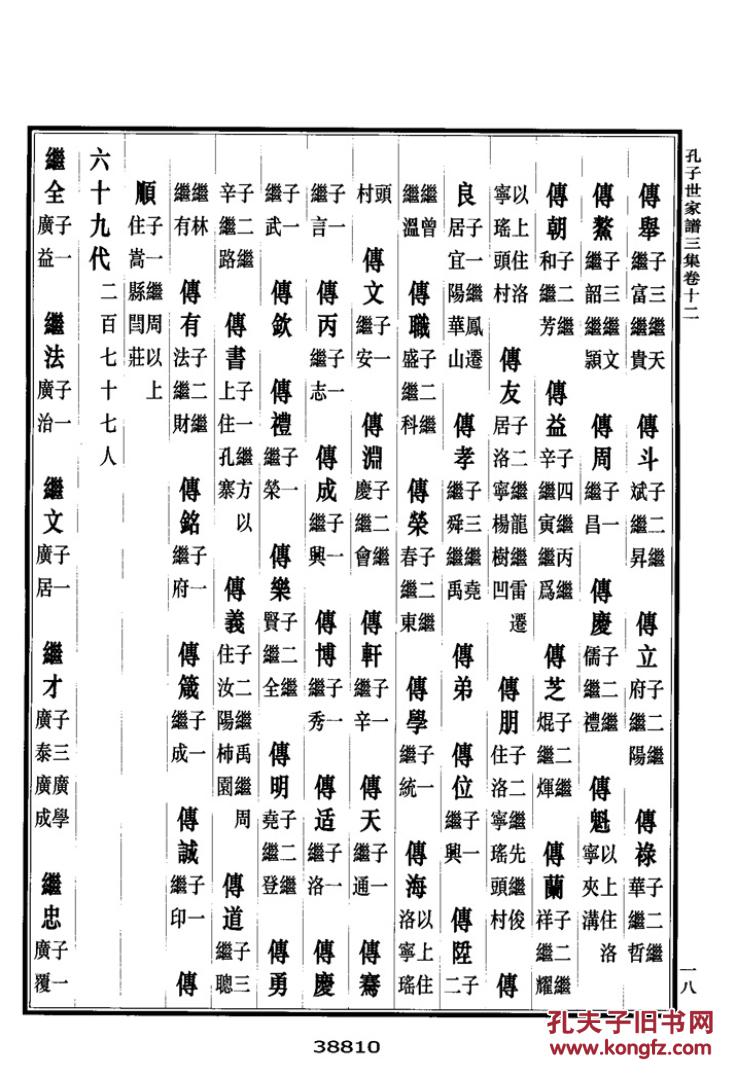 孔子世家譜三集卷十二 一八
傳舉 子三繼天繼富繼貴 傳斗 子二繼斌繼昇 傳立 子二繼府繼陽 傳祿 子二繼華繼哲
傳鰲 子三繼文繼韶繼潁 傳周 子一繼昌 傳慶 子二繼儒繼禮 傳魁 以上住洛寧夾溝
傳朝 子二繼和繼芳 傳益 子四繼丙繼辛繼寅繼爲 傳芝 子二繼焜繼煇 傳蘭 子二繼祥繼耀
以上住洛寧瑤頭村 傳友 子二繼龍繼雷遷居洛寧楊樹凹 傳朋 子二繼先繼俊住洛寧瑤頭村 傳
良 子一繼鳳遷居宜陽華山 傳孝 子三繼堯繼舜繼禹 傳弟 傳位 子一繼興 傳陞 子二
繼曾繼溫 傳職 子二繼盛繼科 傳榮 子二繼春繼東 傳學 子一繼統 傳海 以上住洛寧瑤
頭村 傳文 子一繼安 傳淵 子二繼慶繼會 傳軒 子一繼辛 傳天 子一繼通 傳騫
子一繼言 傳丙 子一繼志 傳成 子一繼興 傳博 子一繼秀 傳适 子一繼洛 傳慶
子一繼武 傳欽 傳禮 子一繼榮 傳樂 子二繼賢繼全 傳明 子二繼堯繼登 傳勇
子二繼辛繼路 傳書 子一繼方以上住孔寨 傳義 子二繼禹繼周住汝陽柿園 傳道 子三繼聰
繼林繼有 傳有 子二繼法繼財 傳銘 子一繼府 傳箴 子一繼成 傳誠 子一繼印 傳
順 子一繼周以上住嵩縣閆莊
六十九代 二百七十七人
繼全 子一廣益 繼法 子一廣治 繼文 子一廣居 繼才 子三廣學廣泰廣成 繼忠 子一廣覆
38810
孔夫子旧书网
www.kongfz.com